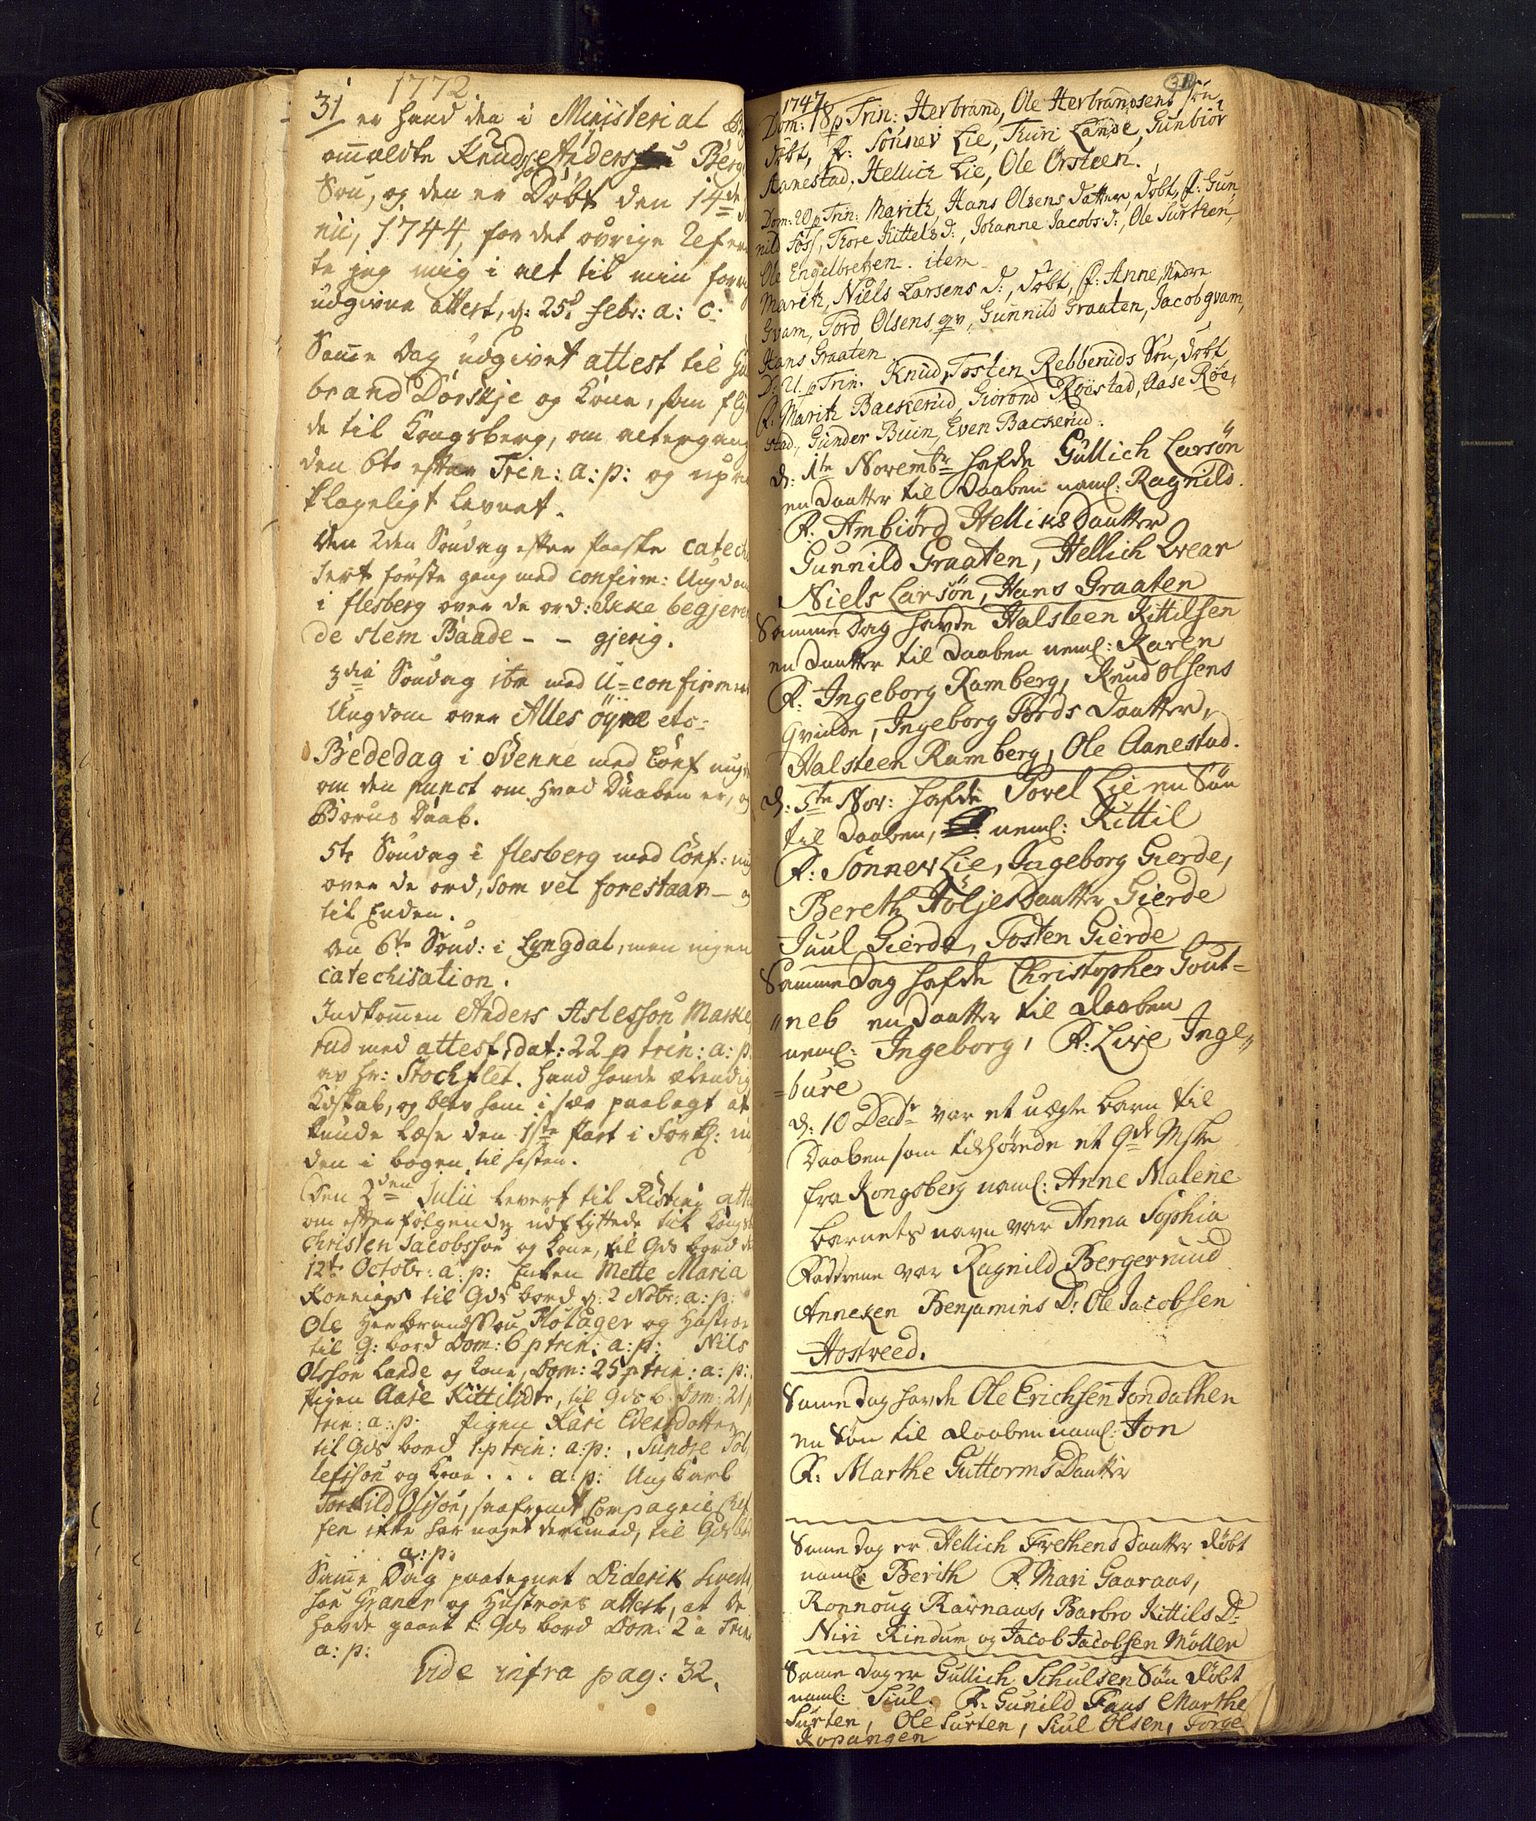 1772
31
er hand den i Ministerial
ommeldte Knud Anders Berg
Søn, og den er Døbt den 14de
nii, 1744, for det øvrige Refere
te jeg mig i alt til min forrige
udgivne attest, d: 25d febr: a: c:
Samme Dag udgivet attest til Gul
brand Dørskje og Kone, som fly
de til Kongsberg, om altergang
den 6te efter Trin: a: p: og upaa
klageligt levnet.
Den 2den Søndag efter Paaske catech
sert første gang med confirm: Ungdom
i flesberg over de ord: Ikke begjere
de slem Baade - - gjerig.
3die Søndag ibm med U=confirmer
Ungdom over Alles øyne etc:
Bededag i Svenne med Conf ung
om den punct om hvad Daaben er, og
Børns Daab.
5te Søndag i flesberg med Conf: ung
over de ord, som vel forestaar - og
til Enden.
den 6te Sønd: i Lyngdal, men ingen
catechisation.
Indkommen Anders Aslessøn Marke
rud med attest, dat: 22 p trin: a: p
av hr: Stockflet. hand havde elendig
Kdskab, og blev ham i sær paalagt at
kunde læse den 1ste Part i Forkl: in
den i bogen til høsten.
Den 2den Julii levert til Kisting atte
om efterfølgende udflyttede til Kongsb
Christen Jacobssøn og Kone, til Gds bord d
12te Octobr: a: p: Enken Mette Maria
Rønnings til Gds bord d: 2 Nobr: a: p:
Ole Herbrandssøn Flotager og Hustroe
til G: bord Dom: 6 p trin: a: p: Nils
Olssøn Lande og Kone, Dom: 25 p trin: a: p:
Pigen Aase Kittilsdtr, til Gds b: Dom: 21 p
trin: a: p: Pigen Kari Evensdatter
til Gds bord 1 p trin: a: p: Sundre Tol
lefssøn og Kone . . . a: p: Ung Karl
Torkild Olssøn, saafremt Compagnie Chef
fen ikke har noget derimod, til Gds b
a: p:
Samme Dag paategnet Diderik Siverts
søn Graner og Hustroes attest, at de
havde gaaet t: Gds bord Dom: 2 a Trin
a: p:
Vide infra pag: 32.
1747
Dom: 18 p Trin: Herbrand, Ole Herbrandsens søn
Døbt, F: Sønnev Lie, Turi Lande, Gunbiør
Aanestad, Hellich Lie, Ole Ørsteen.
Dom: 20 p Trin: Marith, Hans Olsens Datter døbt, F: Gun
nild Foss, Thore Kittels D:, Johanne Jacobs D:, Ole Surthen,
Ole Engelbretsen. item
Marith, Niels Larsens D:, Døbt, F: Anne Nedre
Gvam, Tord Olsens qv, Gunnild Graaten, Jacob gvam,
Hans Graaten.
D: 21 p Trin: Knud, Tosten Rebberuds Søn, døbt
F: Marith Backerud, Giørond Røistad, Aase Røe,
stad, Gunder Buin, Even Backerud.
d: 1te Novembr hafde Gullich Larsøn
en daatter til Daaben neml: Ragnild.
F: Ambiørd Helliks Daatter
Gunnild Graaten, Hellich Qvear
Niels Larsøn, Hans Graaten
Samme Dag hafde Halsteen Kittilsen
en daatter til daaben neml: Karen
F: Ingeborg Ramberg, Knud olsens
Qvinde, Ingeborg Tords Daatter,
Halsteen Ramberg, Ole Aanestad.
d: 5te Nov: hafde Povel Lie en Søn
til Daaben, neml: Kittil
F: Sønnev Lie, Ingeborg Gierde,
Bereth Føljes Daatter Gierde
Juul Gierde, Tosten Gierde
Samme Dag hafde Christopher Gout=
neb en daatter til Daaben
neml: Ingeborg, F: Live Inge
=bure
d: 10 Decbr var et uægte barn til
Daaben som tilhørede et Qde Mske
fra Kongsberg naml: Anne Malene
barnets navn var Anna Sophia
Faddrene var Ragnild Bergerund
Anneken Benjamins D: Ole Jacobsen
Hostveed.
Same dag havde Ole Erichsen Jondalhen
en Søn til Daaben naml: Jon
F: Marthe Guttorms Daatter
Same dag er Hellich Frethens Daatter døbt
naml: Berith F: Mari Gaaraas,
Ronnoug Ravnaas, Barbro Kittils D:
Niri Rindum og Jacob Jacobsen Møller
Same Dag er Gullich Schulsen Søn døbt
naml: Siul. F: Gunild Faus Marthe
Surten, Ole Surten, Siul Olsen, Torge
Kopangen